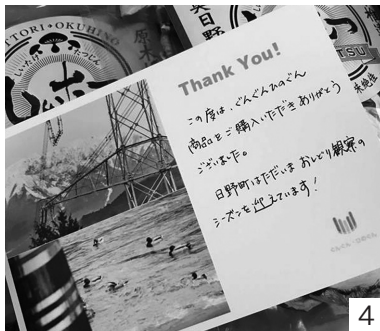 TTORI・OKUHINO
しいたけ
たつじん
奥日野
原木
Thank You!
この度は、ぐんぐんひのぐん
商品をご購入いただきありがとう
ございました。
日野町はただいまおしどり観察の
シーズンを迎えています!
4